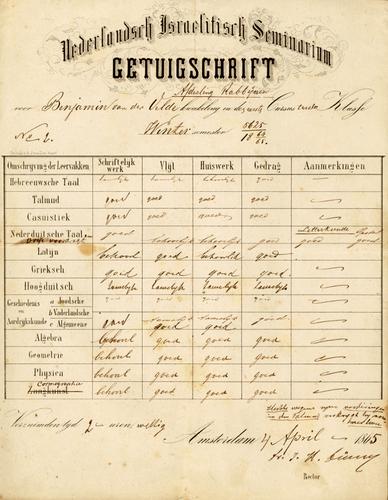 Nederlandsch Israelitisch Seminarium
GETUIGSCHRIFT
Afdeeling Rabbijnen
voor Benjamin van der Velde kweekeling in de Cursus Klasse
No. 2. Winter semester 5625
18 64/65.
Omschrijving der Leervakken Schriftelijk werk Vlijt Huiswerk Gedrag Aanmerkingen
Hebreeuwsche Taal tamelijk tamelijk tamelijk goed
Talmud goed goed goed goed
Casuistiek goed goed goed goed
Nederduitsche Taal goed Letterkunde
behoorlijk behoorlijk goed goed goed
Latijn behoorl goed behoorlijk goed
Grieksch goed goed goed goed
Hoogduitsch tamelijk tamelijk tamelijk tamelijk
Geschiedenis en Aardrijkskunde
a Joodsche
b Vaderlandsche
c Algemeene goed goed goed goed
Algebra behoorl goed goed goed
Geometrie behoorl goed goed goed
Physica behoorl goed goed goed
Cosmographie
Zangkunst behoorl goed goed goed
Verzuimden tyd 2 uren
Amsterdam 4 April 1865
Dr. J. H. Dünner
Rector